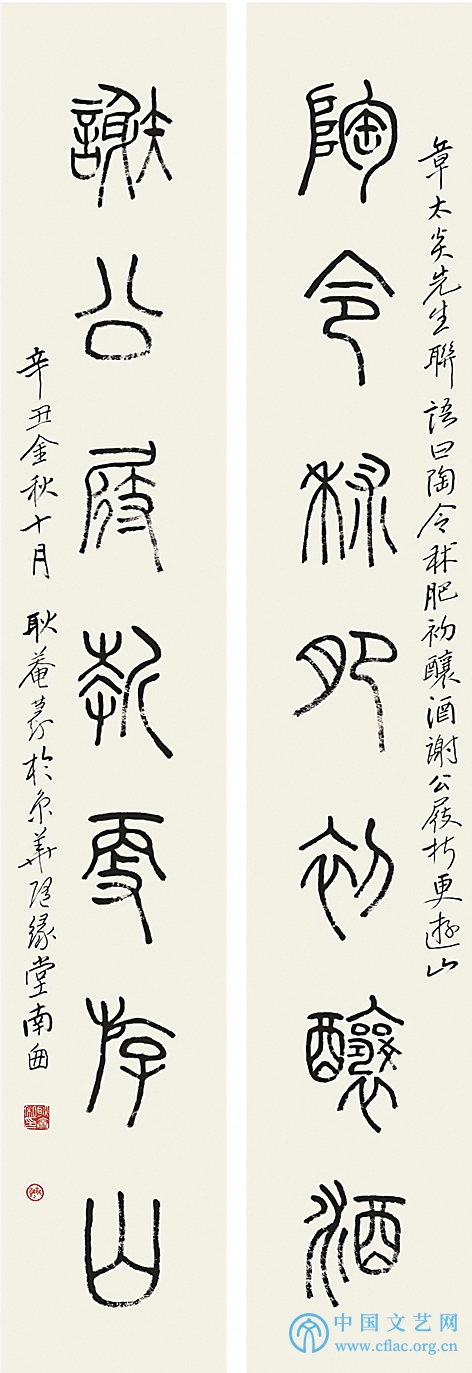 章太炎先生聯語曰陶令秫肥初釀酒謝公屐折更遊山
陶令秫肥初釀酒
謝公屐折更斿山
辛丑金秋十月 耿菴篆於京華隨緣堂南窗
中国文艺网
www.cflac.org.cn